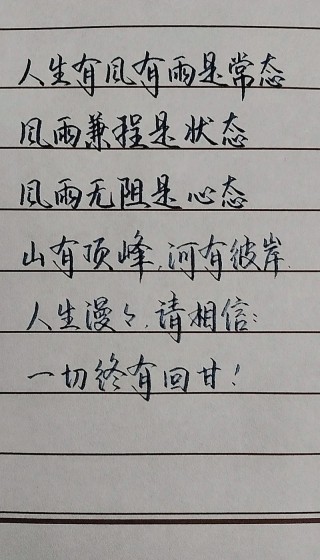 人生有风有雨是常态
风雨兼程是状态
风雨无阻是心态
山有顶峰,河有彼岸.
人生漫々,请相信:
一切终有回甘!